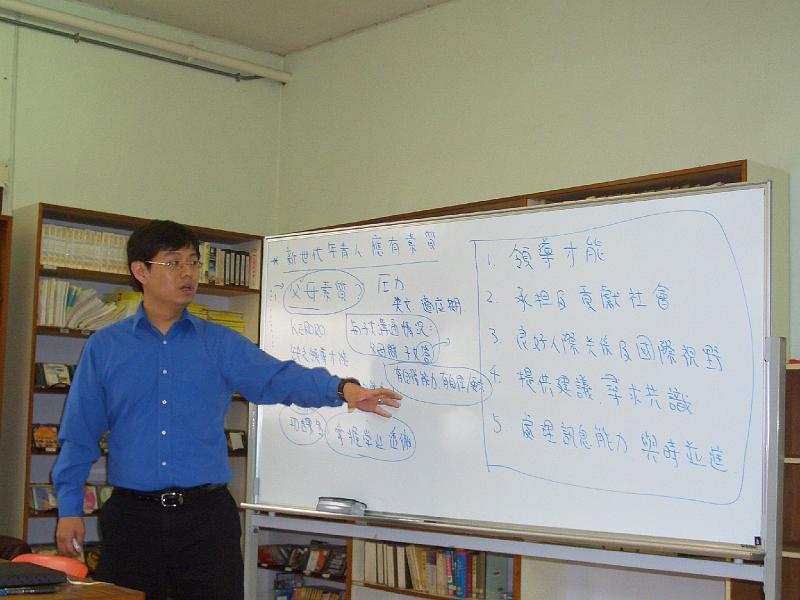 * 新世代年青人應有素質
→ 父母素質:
壓力
英文 適應期
KERORO
與子女溝通情況:
父母問 子女答
有何能力 有自信
功課多
掌握學生適側
1. 領導才能
2. 承担及貢獻社會
3. 良好人際关係及國際視野
4. 提供建議, 尋求共識
5. 處理訊息能力 與時並進